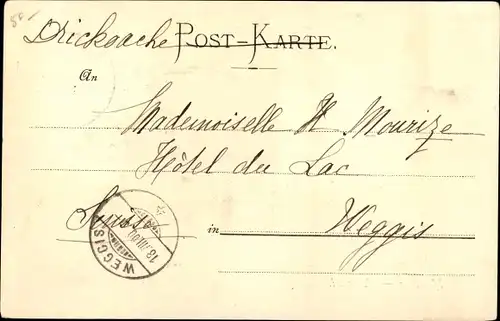 50.-
Drucksache POST-KARTE.
An
Mademoiselle H Mourize
Hôtel du Lac
Suisse in Weggis
WEGGIS
18.III.00